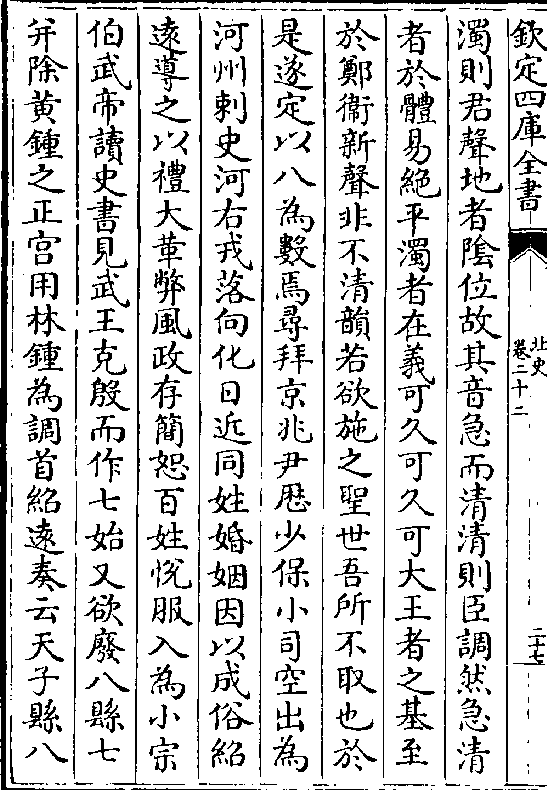 欽定四庫全書
北史
卷二十二
二十七
濁則君聲地者陰位故其音急而清清則臣調然急清
者於體易絶平濁者在義可久可久可大王者之基至
於鄭衞新聲非不清韻若欲施之聖世吾所不取也於
是遂定以八為數焉尋拜京兆尹厯少保小司空出為
河州剌史河右戎落向化日近同姓婚姻因以成俗紹
遠導之以禮大革弊風政存簡恕百姓悅服入為小宗
伯武帝讀史書見武王克殷而作七始又欲廢八縣七
并除黃鍾之正宮用林鍾為調首紹遠奏云天子縣八